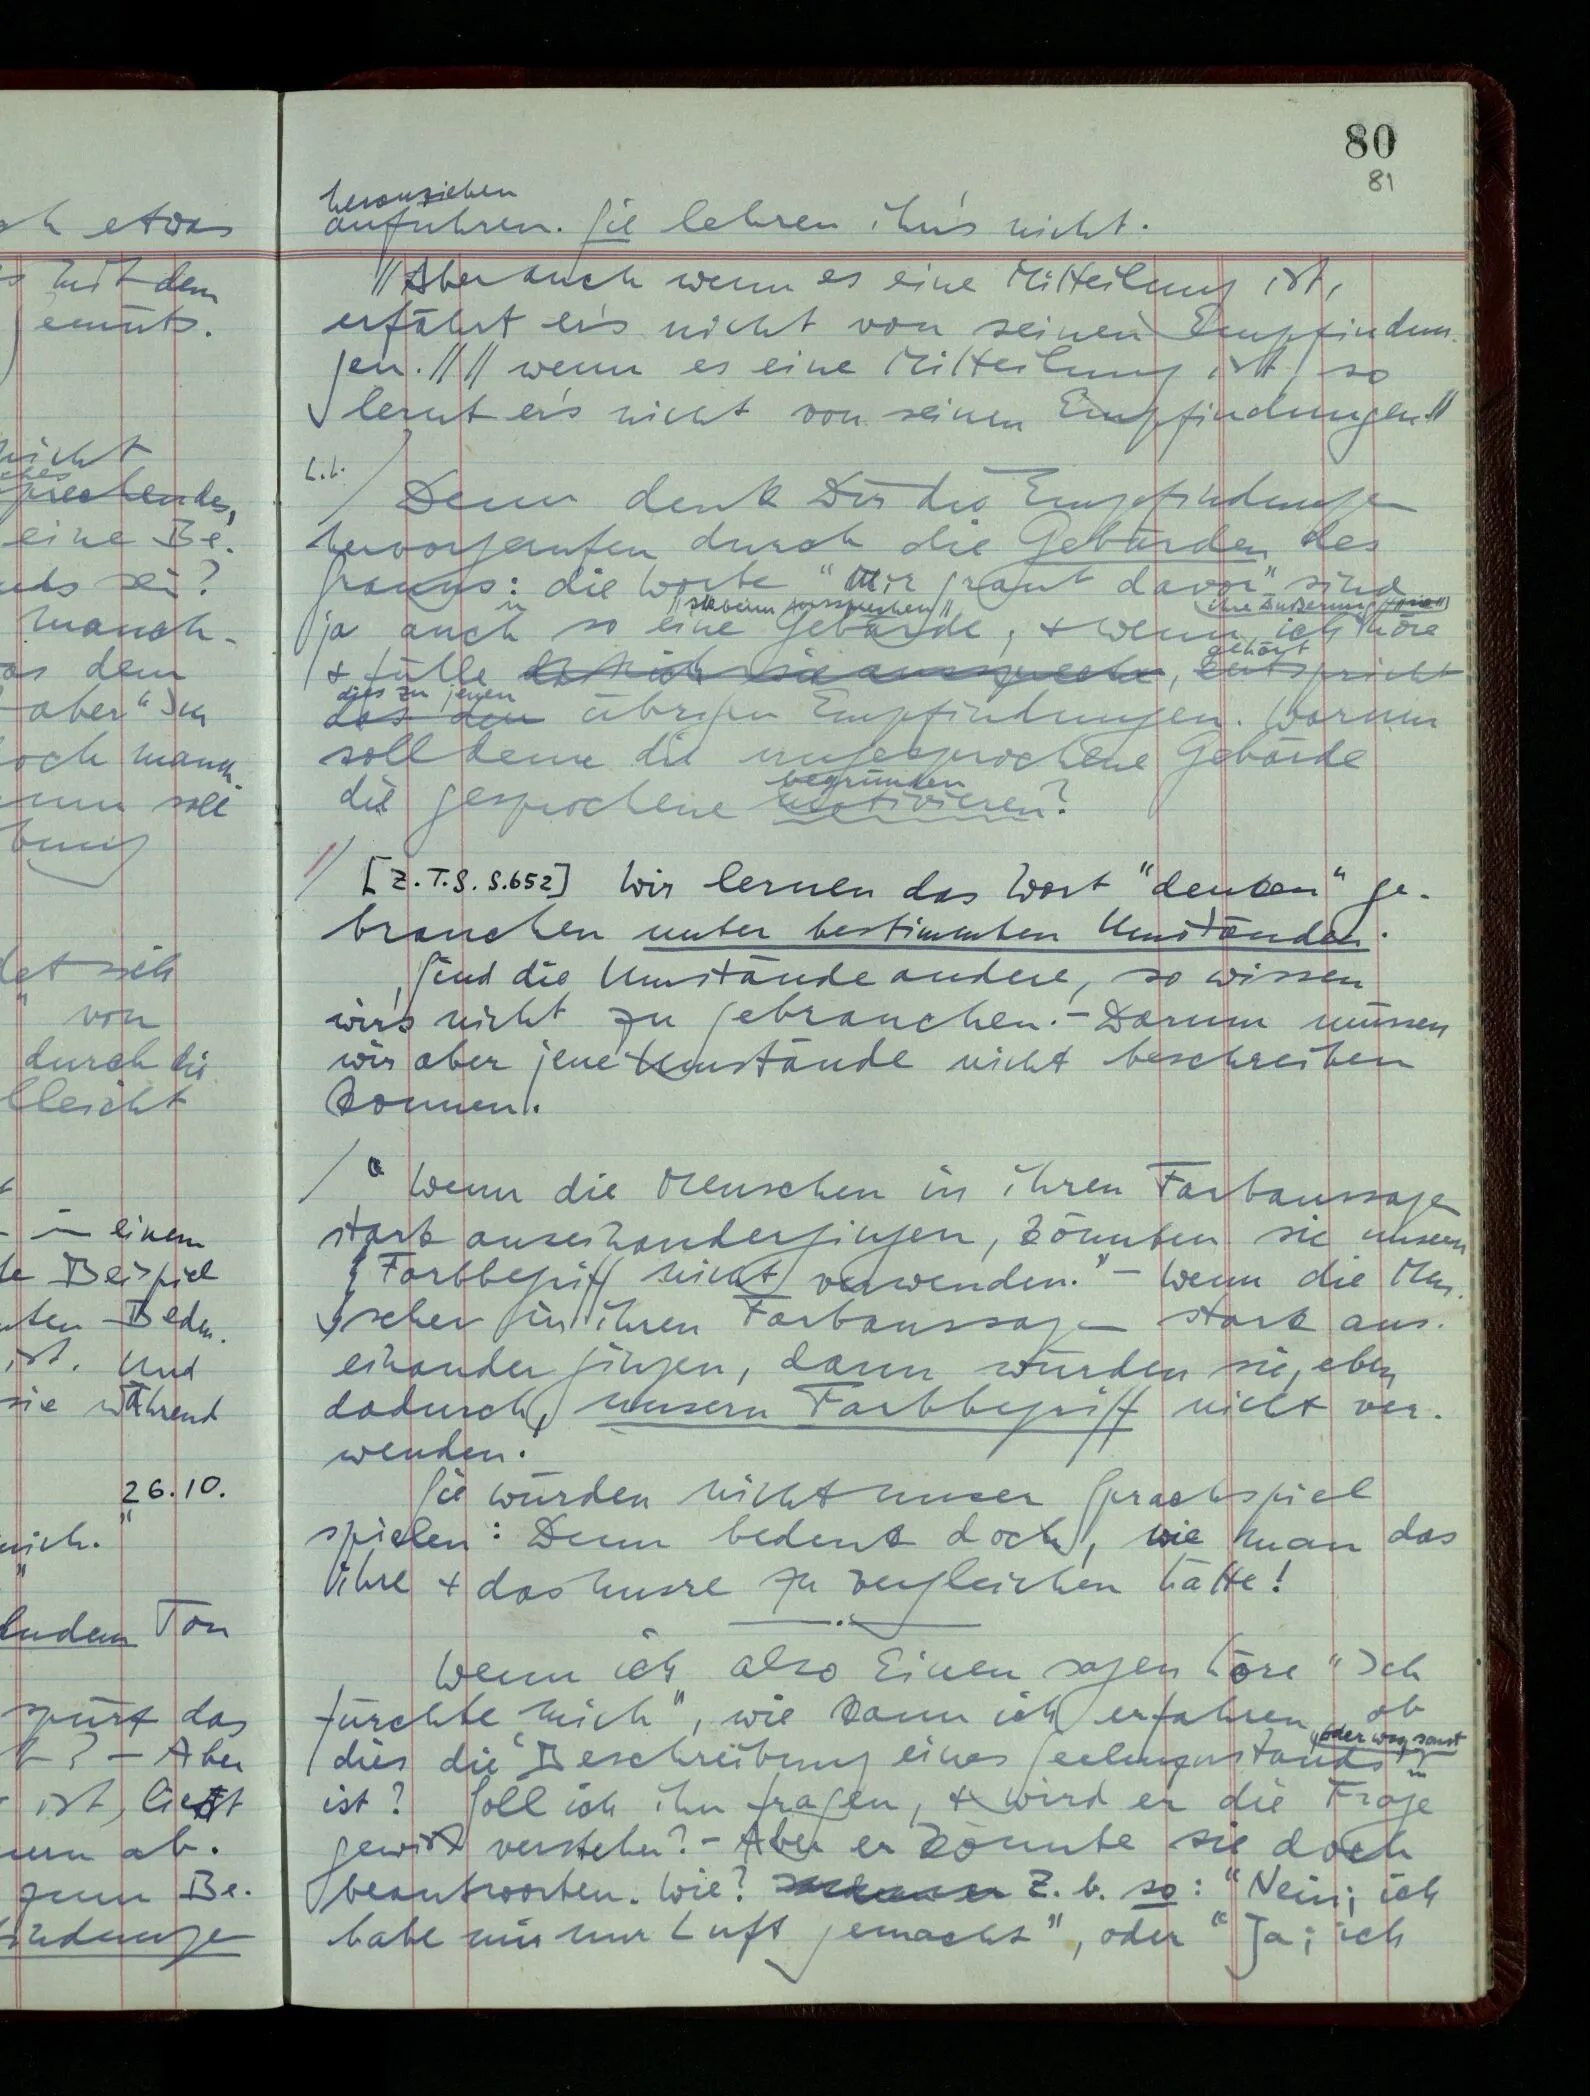 80
81
heranziehen
anführen. Sie lehren ihn's nicht.
//Aber auch wenn es eine Mitteilung ist,
erfährt er's nicht von seinen Empfindun-
gen.// // wenn es eine Mitteilung ist, so
lernt er's nicht von seinen Empfindungen//
/ Denn denk Dir die Empfindungen
hervorgerufen durch die Gebärden des
Grauens: die Worte "mir graut davor" sind
ja auch so eine Gebärde, & wenn ich höre
//sie beim Aussprechen// ihre Äußerung
& fühle, entspricht
gehört
dies zu jenen
das den übrigen Empfindungen. Warum
soll denn die ungesprochene Gebärde
begründen
die gesprochene motivieren?
/ [Z.T.S. S.652] Wir lernen das Wort "denken" ge-
brauchen unter bestimmten Umständen.
Sind die Umstände andere, so wissen
wir's nicht zu gebrauchen. – Darum müssen
wir aber jene Umstände nicht beschreiben
können.
/ "Wenn die Menschen in ihren Farbaussagen
stark auseinandergingen, könnten sie unsern
Farbbegriff nicht verwenden." – Wenn die Men-
schen in ihren Farbaussagen stark aus-
einander gingen, dann würden sie, eben
dadurch, unsern Farbbegriff nicht ver-
wenden.
Sie würden nicht unser Sprachspiel
spielen: Denn bedenk doch, wie man das
ihre & das unsre zu vergleichen hätte!
Wenn ich also Einen sagen höre "Ich
fürchte mich", wie kann ich erfahren, ob
oder was sonst
dies die Beschreibung eines Seelenzustands
ist? Soll ich ihn fragen, & wird er die Frage
gewiß verstehen? – Aber er könnte sie doch
beantworten. Wie? Z.b. so: "Nein; ich
habe mir nur Luft gemacht", oder "Ja; ich
etwas
mit dem
nicht
sprechendes,
eine Be-
sei?
manch-
dem
aber" Ich
doch manch
soll
von
durch die
vielleicht
in einem
Beispiel
ist. Und
sie während
26.10.
mich.
Ton
spürt das
? – Aber
ist, liest
ab.
zum Be-